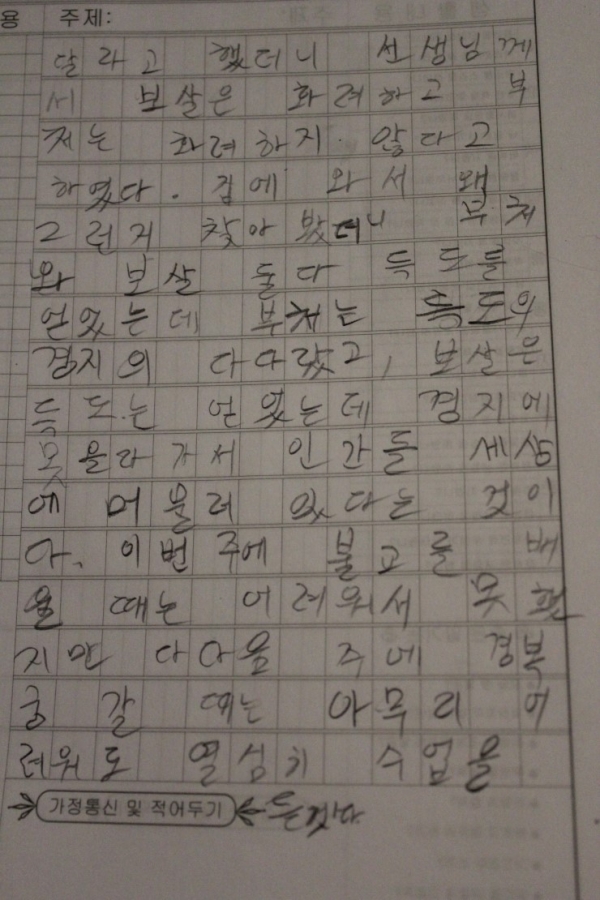 용 주제:
달라고 했더니 선생님께
서 보살은 화려하고 부
처는 화려하지 않다고
하였다. 집에 와서 왜
그런지 찾아 봤더니 부처
와 보살 둘다 득도를
얻었는데 부처는 득도의
경지의 다다랐고, 보살은
득도는 얻었는데 경지에
못 올라가서 인간들 세상
에 머물러 있다는 것이
다. 이번 주에 불교를 배
울 때는 어려워서 못 했
지만 다다음 주에 경복
궁 갈 때는 아무리 어
려워도 열심히 수업을
가정통신 및 적어두기 듣겠다